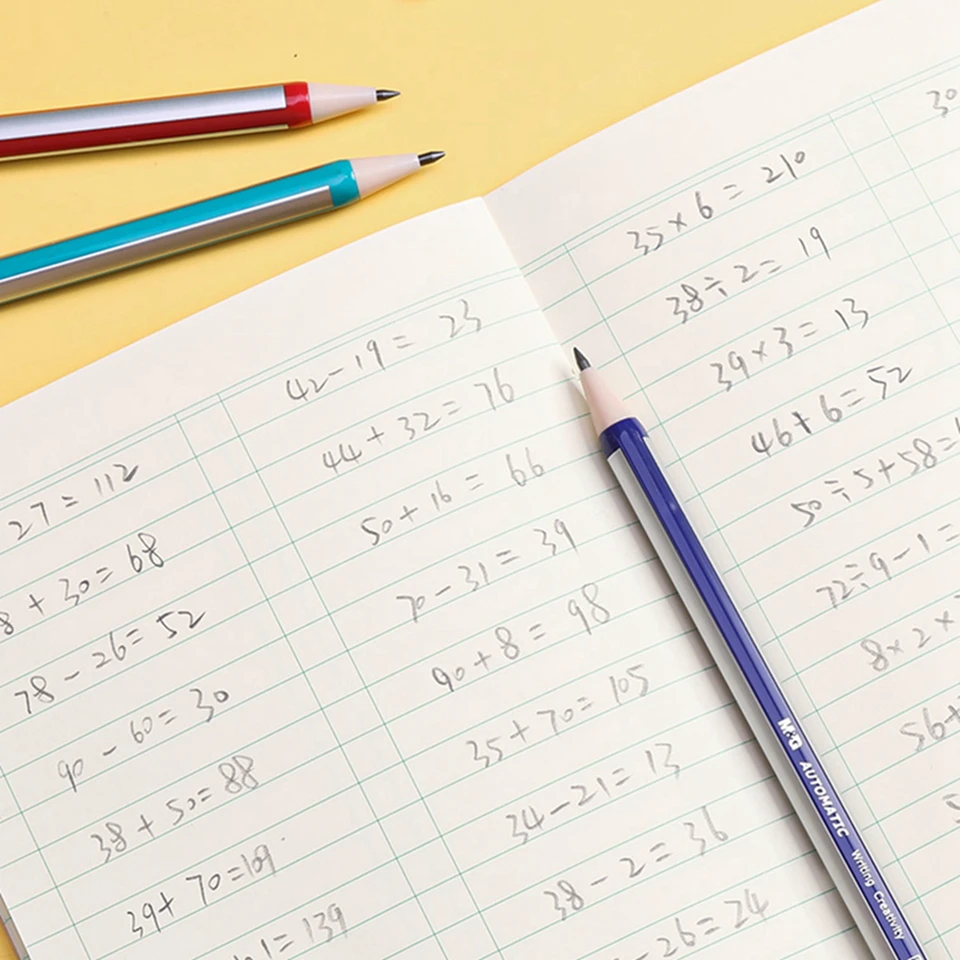 27 = 112
8 + 30 = 68
78 - 26 = 52
90 - 60 = 30
38 + 50 = 88
39 + 70 = 109
1 = 139
42 - 19 = 23
44 + 32 = 76
50 + 16 = 66
70 - 31 = 39
90 + 8 = 98
35 + 70 = 105
34 - 21 = 13
38 - 2 = 36
- 26 = 24
35 × 6 = 210
38 ÷ 2 = 19
39 × 3 = 13
46 + 6 = 52
50 ÷ 5 + 58 =
72 ÷ 9 - 1 =
8 × 2 ×
56 +
30
M&G AUTOMATIC Writing Creativity